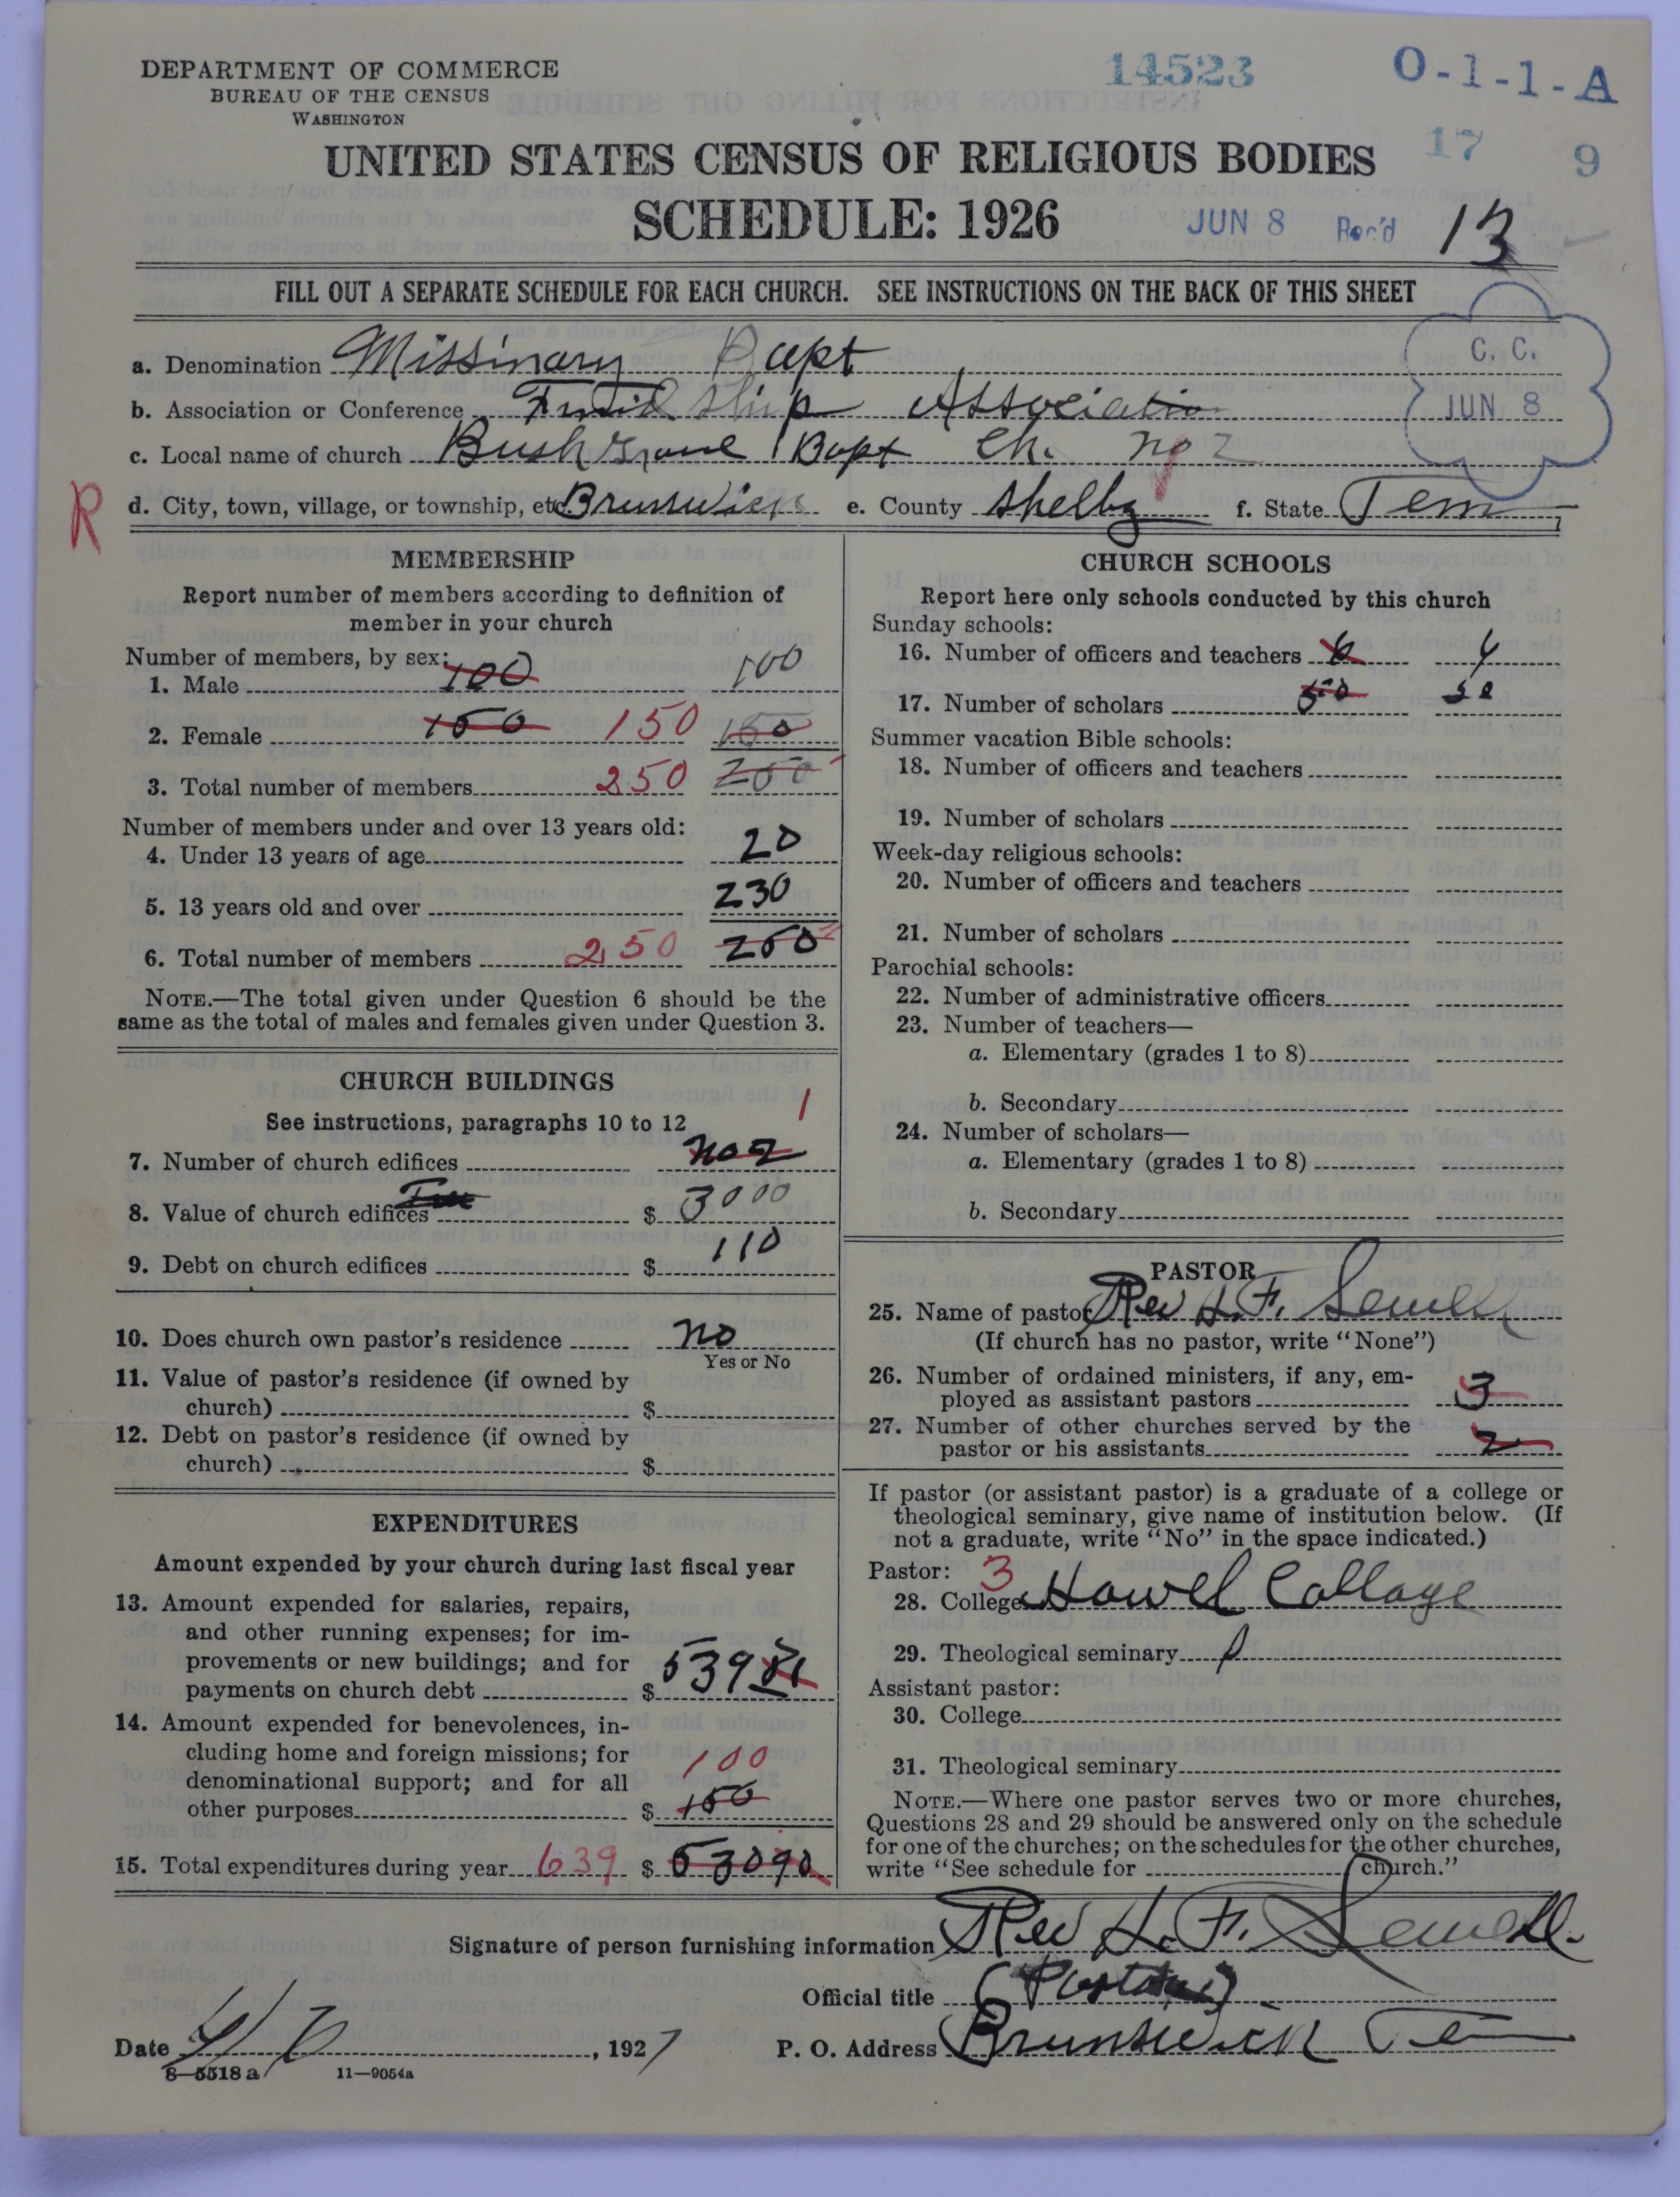 DEPARTMENT OF COMMERCE
BUREAU OF THE CENSUS
WASHINGTON
14523
O-1-1-A
UNITED STATES CENSUS OF RELIGIOUS BODIES
17 9
SCHEDULE: 1926
JUN 8 Rec'd 13
FILL OUT A SEPARATE SCHEDULE FOR EACH CHURCH. SEE INSTRUCTIONS ON THE BACK OF THIS SHEET
C. C.
JUN 8
a. Denomination Missinary Bapt
b. Association or Conference Association
c. Local name of church Bush Grove Bapt Ch. no 2
R
d. City, town, village, or township, etc. Brunswick e. County Shelby f. State Tenn
MEMBERSHIP
Report number of members according to definition of
member in your church
Number of members, by sex:
1. Male 100 100
2. Female 150 150 150
3. Total number of members 250 250
Number of members under and over 13 years old:
4. Under 13 years of age 20
5. 13 years old and over 230
6. Total number of members 250 250
NOTE.—The total given under Question 6 should be the
same as the total of males and females given under Question 3.
CHURCH BUILDINGS
See instructions, paragraphs 10 to 12
1
7. Number of church edifices no 2
8. Value of church edifices $ 3000
9. Debt on church edifices $ 110
10. Does church own pastor's residence no
Yes or No
11. Value of pastor's residence (if owned by
church) $
12. Debt on pastor's residence (if owned by
church) $
EXPENDITURES
Amount expended by your church during last fiscal year
13. Amount expended for salaries, repairs,
and other running expenses; for im-
provements or new buildings; and for
payments on church debt $ 539
14. Amount expended for benevolences, in-
cluding home and foreign missions; for
denominational support; and for all 100
other purposes $ 100
15. Total expenditures during year 639 $ 53090
CHURCH SCHOOLS
Report here only schools conducted by this church
Sunday schools:
16. Number of officers and teachers 6
17. Number of scholars 50 50
Summer vacation Bible schools:
18. Number of officers and teachers
19. Number of scholars
Week-day religious schools:
20. Number of officers and teachers
21. Number of scholars
Parochial schools:
22. Number of administrative officers
23. Number of teachers—
a. Elementary (grades 1 to 8)
b. Secondary
24. Number of scholars—
a. Elementary (grades 1 to 8)
b. Secondary
PASTOR
25. Name of pastor Rev H. F. Sewell
(If church has no pastor, write "None")
26. Number of ordained ministers, if any, em-
ployed as assistant pastors 3
27. Number of other churches served by the
pastor or his assistants 2
If pastor (or assistant pastor) is a graduate of a college or
theological seminary, give name of institution below. (If
not a graduate, write "No" in the space indicated.)
Pastor: 3
28. College Howel Collage
29. Theological seminary
Assistant pastor:
30. College
31. Theological seminary
NOTE.—Where one pastor serves two or more churches,
Questions 28 and 29 should be answered only on the schedule
for one of the churches; on the schedules for the other churches,
write "See schedule for church."
Signature of person furnishing information Rev H. F. Sewell.
Official title (Pastor)
Date , 1927
P. O. Address Brunswick Ten
8—5518 a 11—9054a